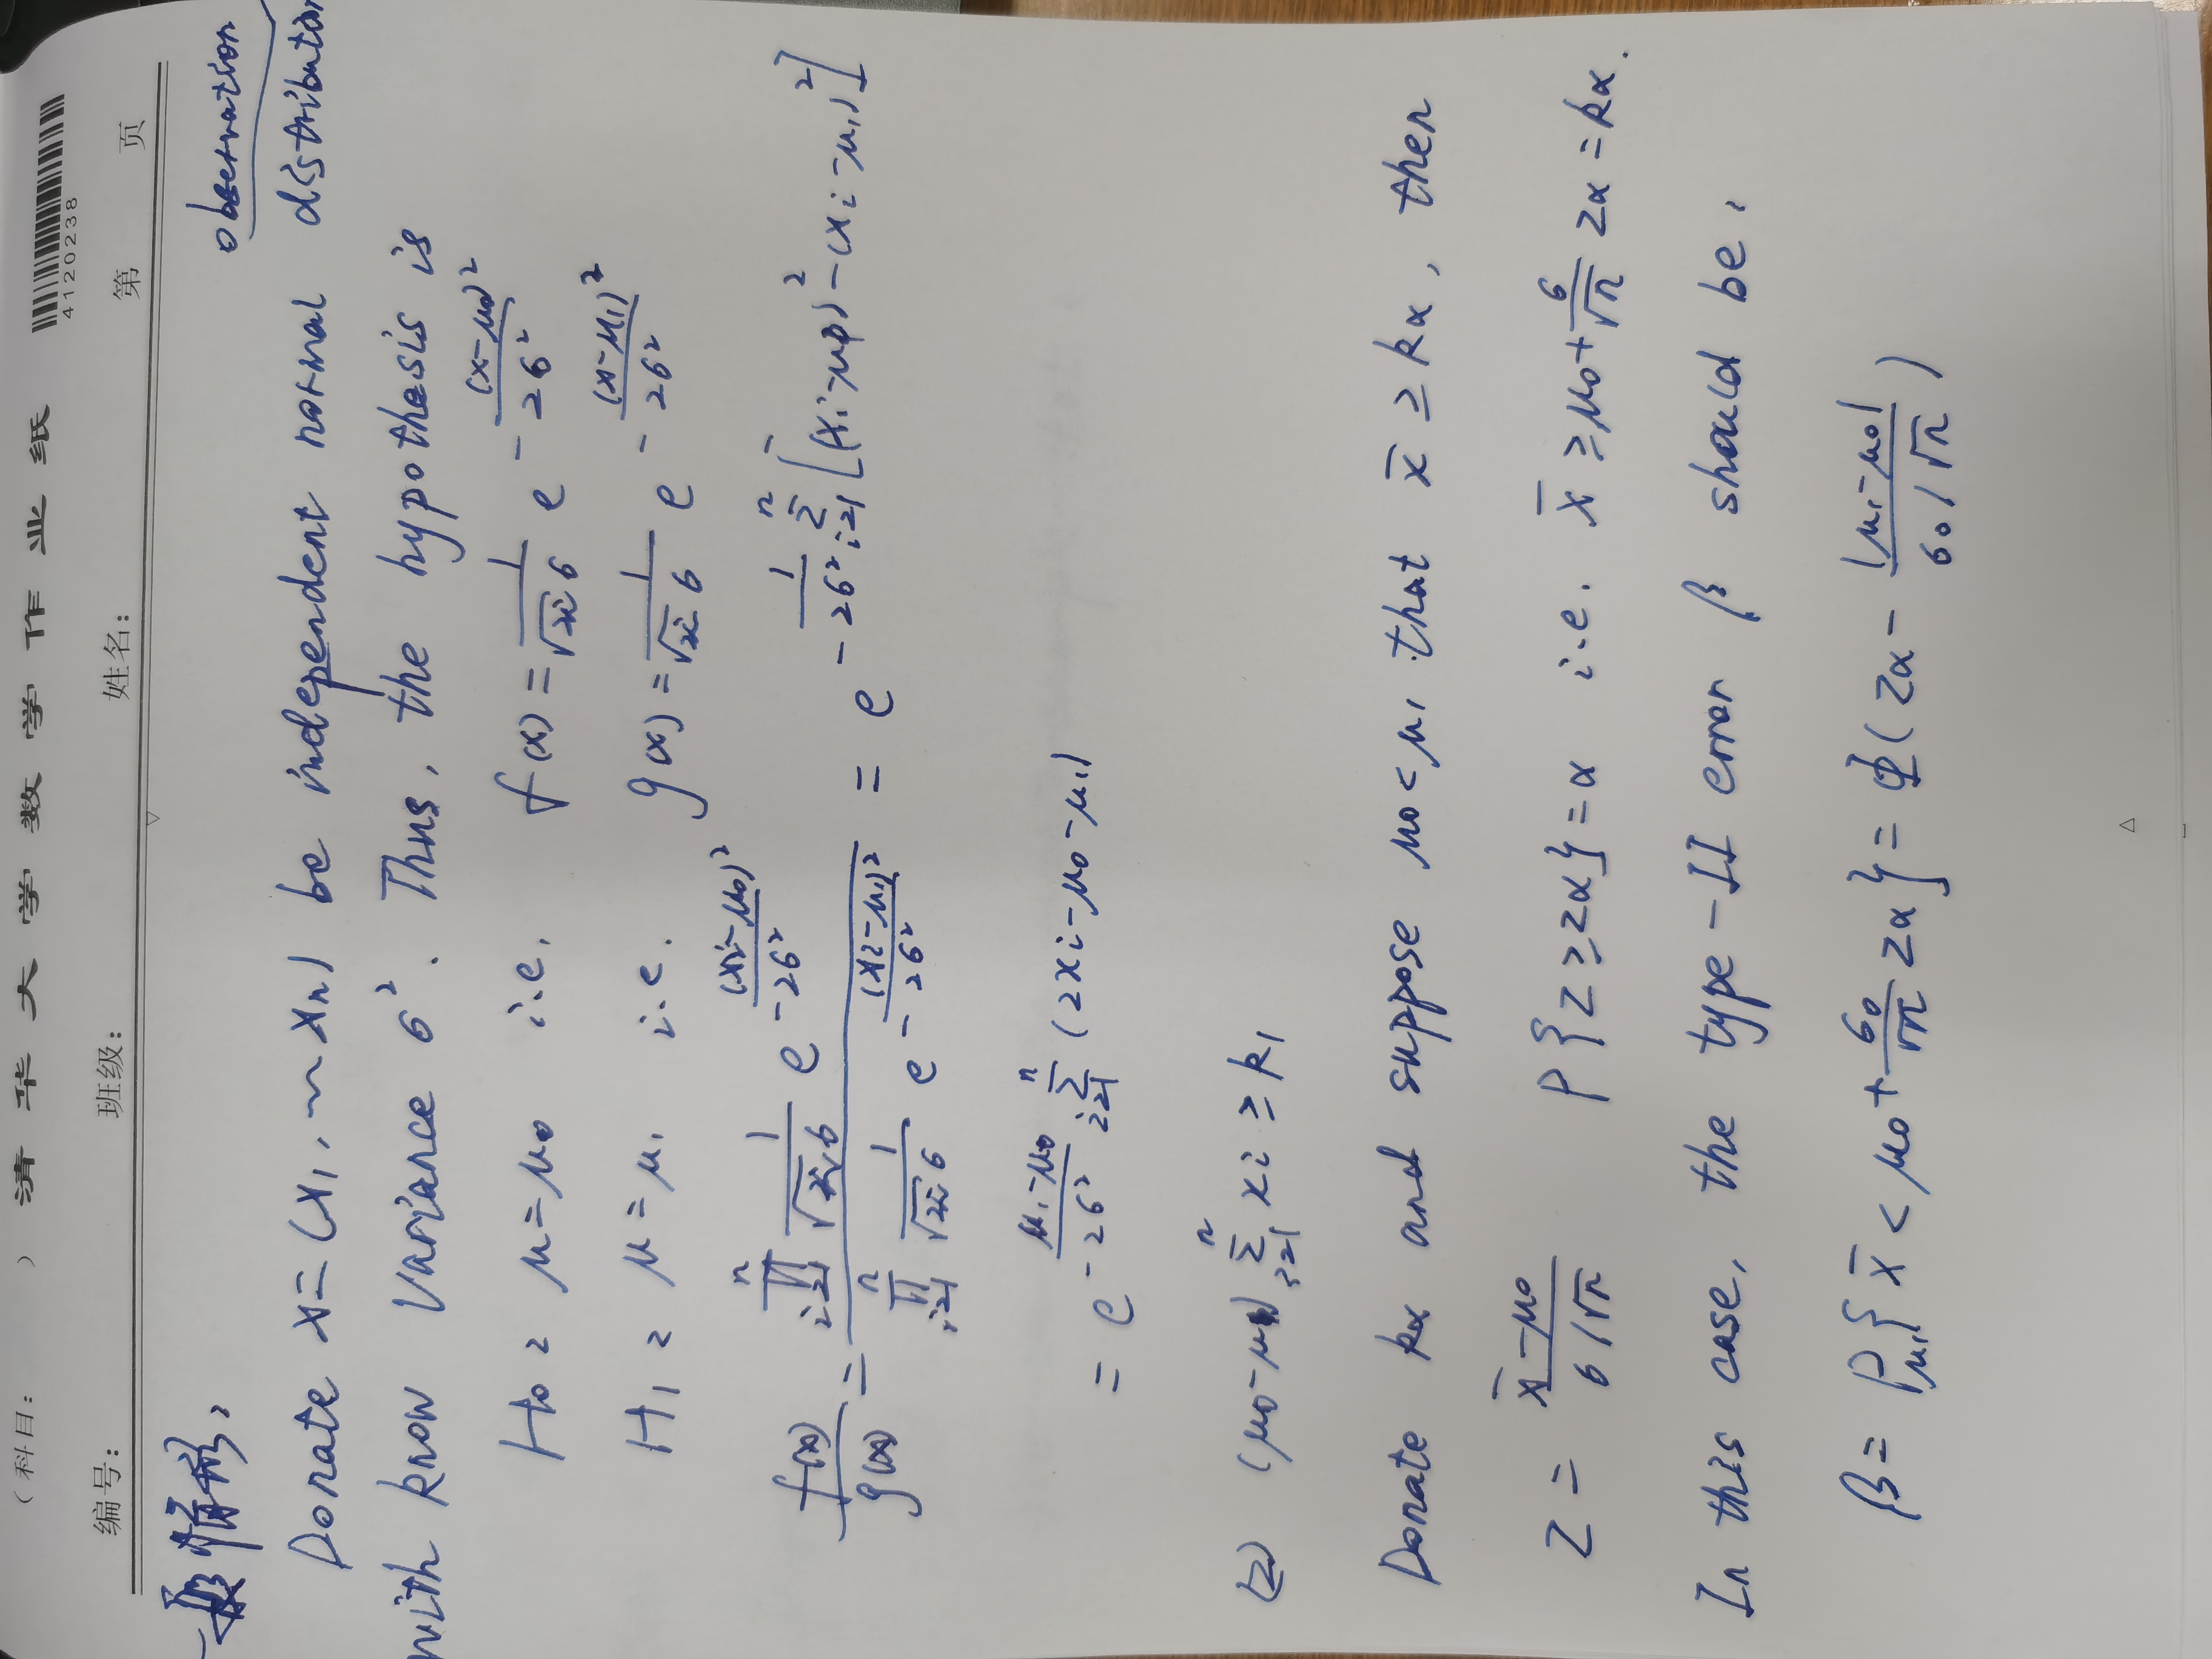 (科目: ) 清华大学数学作业纸
4120238
编号: 班级: 姓名: 第 页
一般情形:
observation
Donate x=(x₁,~xₙ) be independent normal distribution
with know variance σ². Thus, the hypothesis is
H₀: μ=μ₀ i.e. f(x)=1/(√2π σ) e^(-(x-μ₀)²/2σ²)
H₁: μ=μ₁ i.e. g(x)=1/(√2π σ) e^(-(x-μ₁)²/2σ²)
f(x)/g(x) = ∏ᵢ₌₁ⁿ 1/(√2π σ) e^(-(xᵢ-μ₀)²/2σ²) / ∏ᵢ₌₁ⁿ 1/(√2π σ) e^(-(xᵢ-μ₁)²/2σ²) = e^(-1/2σ² Σᵢ₌₁ⁿ [(xᵢ-μ₀)²-(xᵢ-μ₁)²])
= e^(-(μ₁-μ₀)/2σ² Σᵢ₌₁ⁿ (2xᵢ-μ₀-μ₁))
(2) (μ₀-μ₁) Σᵢ₌₁ⁿ xᵢ ≥ k₁
Donate kα and suppose μ₀<μ₁ that x̄ ≥ kα, then
Z = (x̄-μ₀)/(σ/√n) P{Z≥zα}=α i.e. x̄ ≥ μ₀+σ/√n zα = kα.
In this case, the type-II error β should be:
β= P_μ₁{x̄ < μ₀+σ₀/√n zα}= Φ(zα - |μ₁-μ₀|/(σ₀/√n))